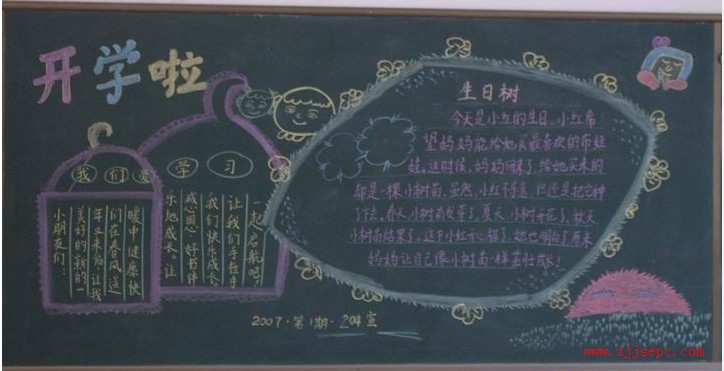 开学啦
我们爱学习
小朋友们：
美好的新的一
年又来临，让我
们在春风送
暖中健康快
乐地成长。让
感恩、好习伴
我们快乐成长
让我们手拉手
一起启航吧！
生日树
今天是小红的生日，小红希
望妈妈能给她买最喜欢的布娃
娃。这时候，妈妈回来了，给她买来的
却是一棵小树苗，虽然，小红不乐意，但还是把它种
了下去。春天，小树苗发芽了，夏天，小树开花了，秋天
小树苗结果了，这下小红开心极了，她也明白了原来
妈妈让自己像小树苗一样茁壮成长！
2007·第1期·204室
www.zjjsepc.com